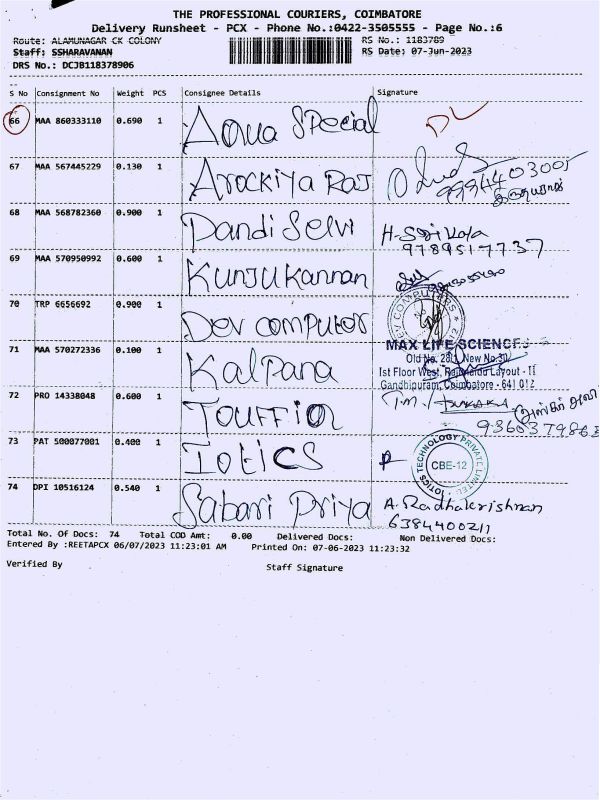 THE PROFESSIONAL COURIERS, COIMBATORE
Delivery Runsheet - PCX - Phone No.:0422-3505555 - Page No.:6
Route: ALAMUNAGAR CK COLONY RS No.: 1183789
Staff: SSHARAVANAN RS Date: 07-Jun-2023
DRS No.: DCJB118378906
S No Consignment No Weight PCS Consignee Details Signature
66 MAA 860333110 0.690 1 Aqua Special DL
67 MAA 567445229 0.130 1 Arockiya Raj
68 MAA 568782360 0.900 1 Dandi Selvi
9789517737
69 MAA 570950992 0.600 1 Kunjukannan
70 TRP 6656692 0.900 1 Dev computer
71 MAA 570272336 0.100 1 Kalpana
MAX LIFE SCIENCES
Old No. 28/1, New No.30
1st Floor West, Layout - II
Gandhipuram, Coimbatore - 641 012
72 PRO 14338048 0.600 1 T.M.
73 PAT 500077001 0.400 1 Iotics
IOTICS TECHNOLOGY PRIVATE LIMITED
CBE-12
74 DPI 10516124 0.540 1 Sabari Priya A. Radhakrishnan
6384400211
Total No. Of Docs: 74 Total COD Amt: 0.00 Delivered Docs: Non Delivered Docs:
Entered By :REETAPCX 06/07/2023 11:23:01 AM Printed On: 07-06-2023 11:23:32
Verified By Staff Signature